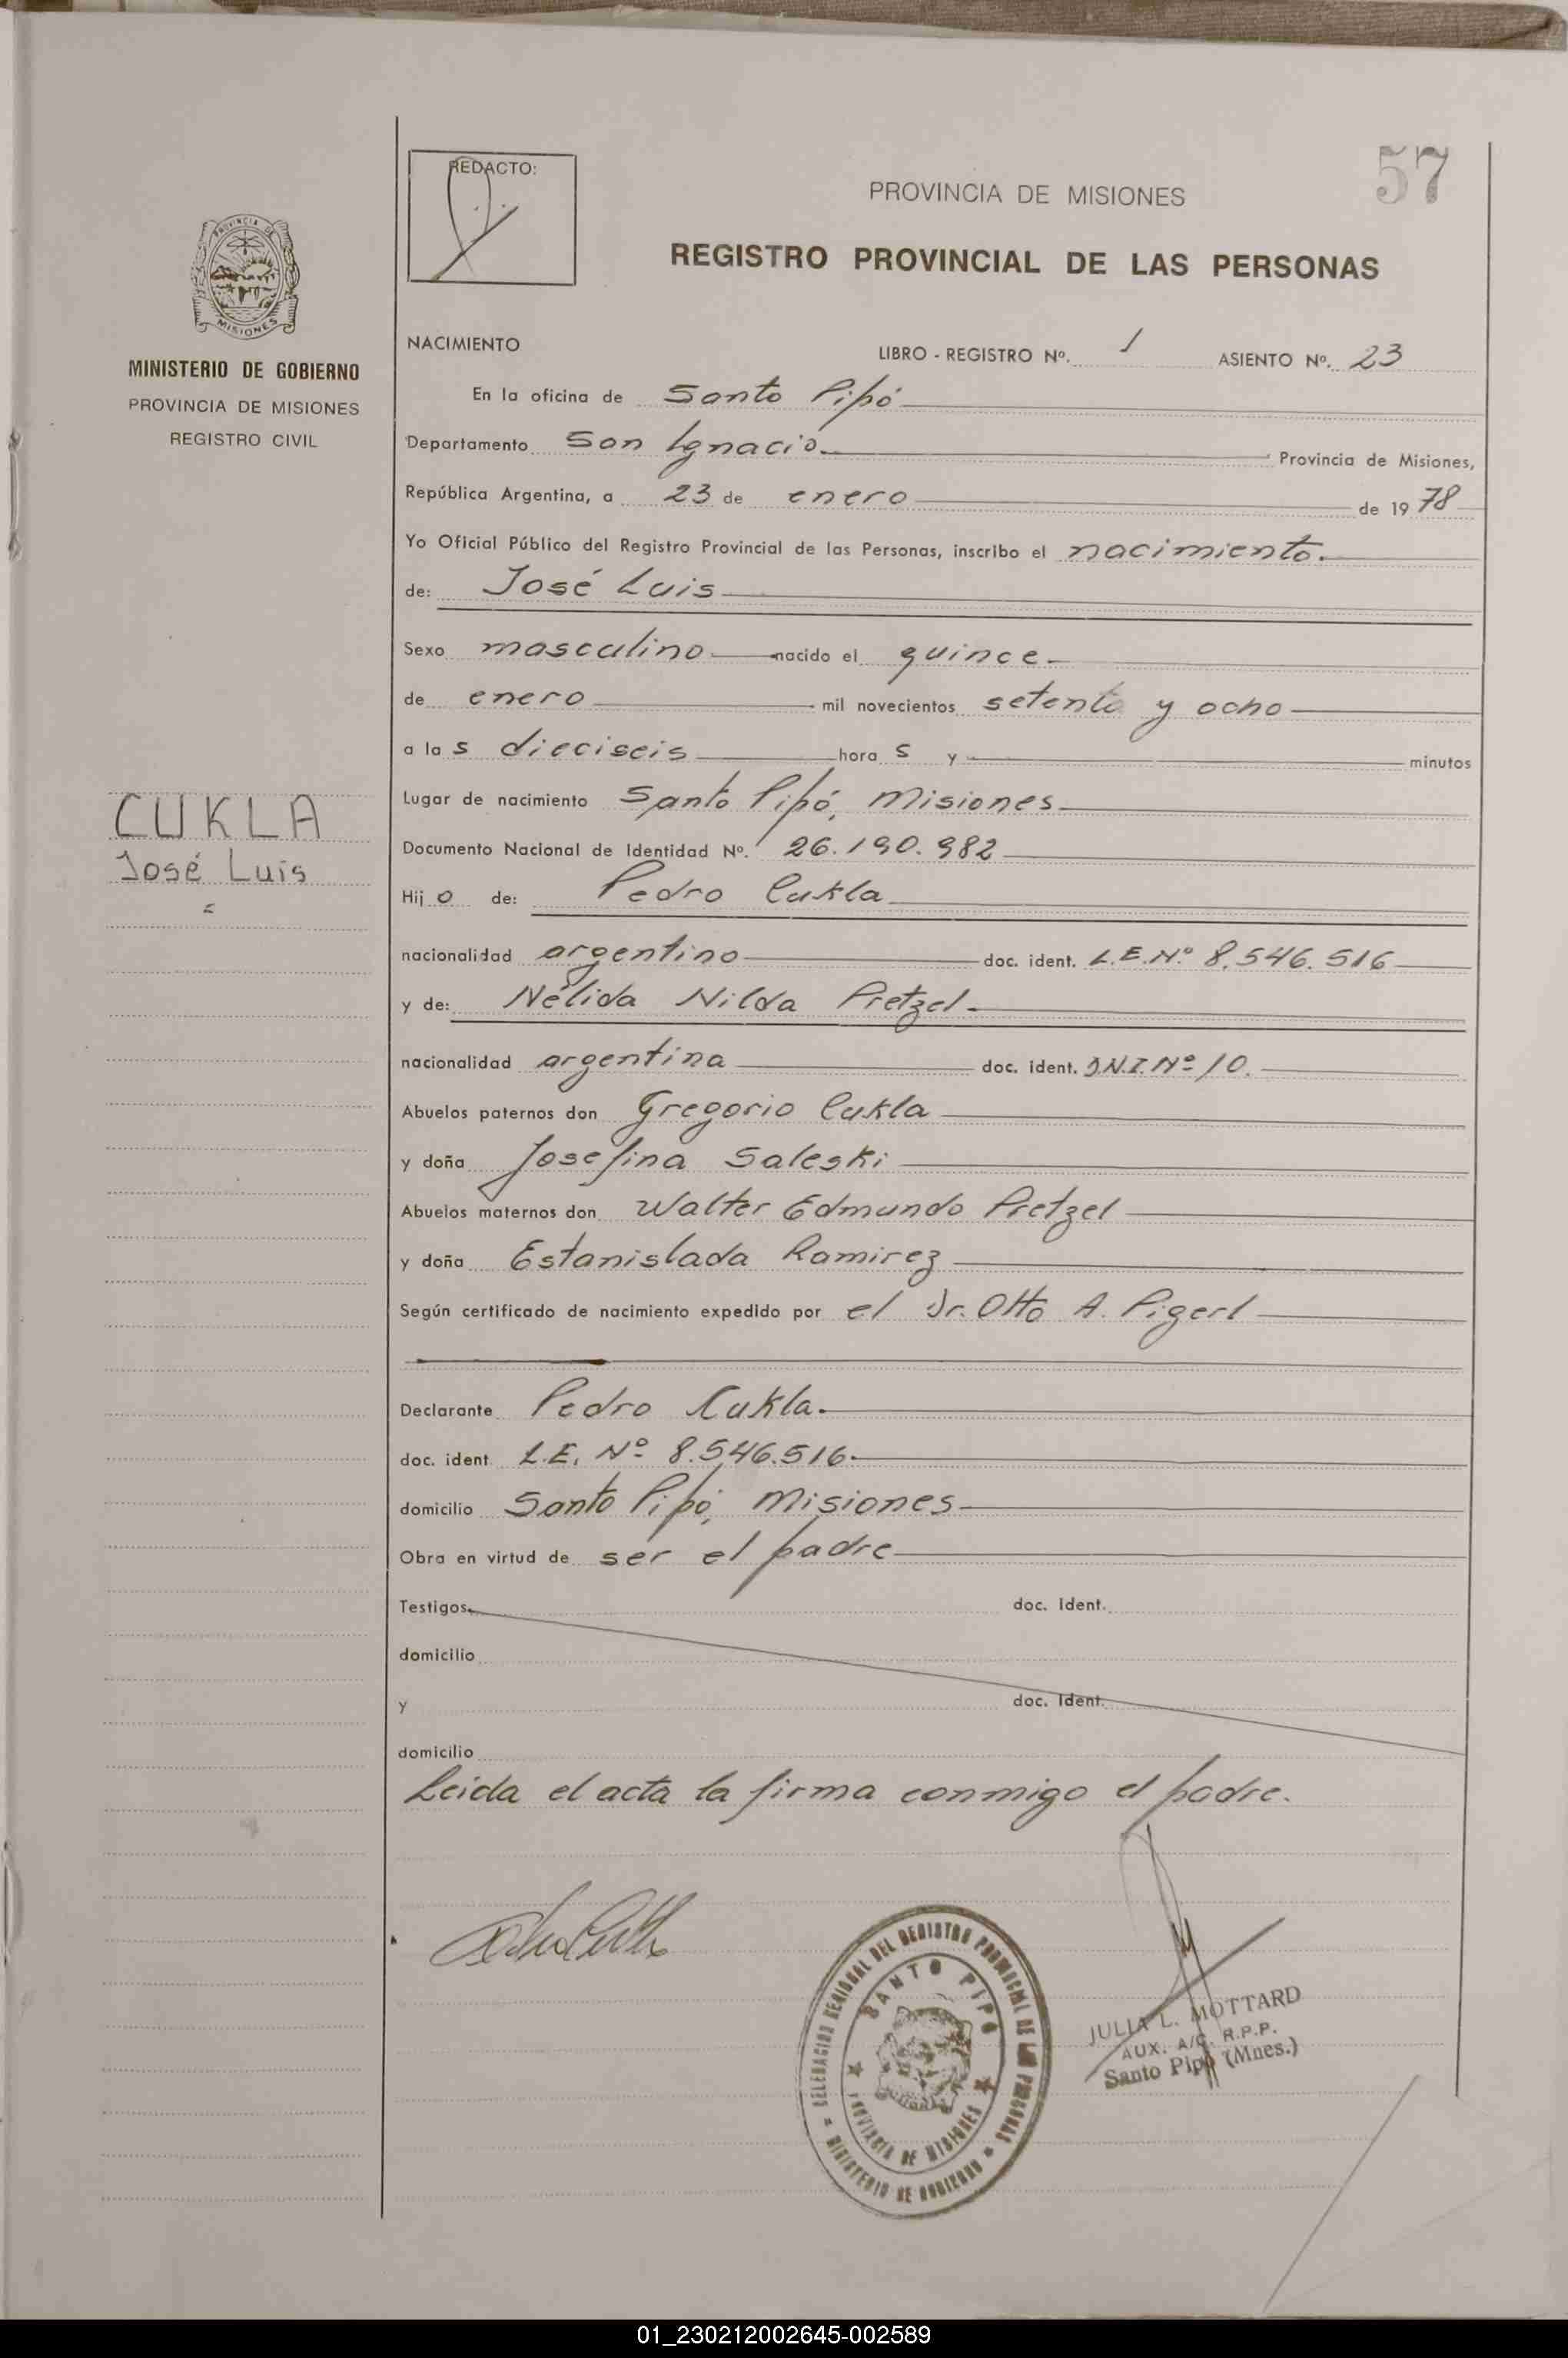 57
REDACTO:
PROVINCIA DE MISIONES
REGISTRO PROVINCIAL DE LAS PERSONAS
PROVINCIA DE
MISIONES
MINISTERIO DE GOBIERNO
PROVINCIA DE MISIONES
REGISTRO CIVIL
CUKLA
José Luis
=
NACIMIENTO LIBRO - REGISTRO Nº. 1 ASIENTO Nº. 23
En la oficina de Santo Pipó
Departamento San Ignacio. Provincia de Misiones,
República Argentina, a 23 de enero de 1978
Yo Oficial Público del Registro Provincial de las Personas, inscribo el nacimiento.
de: José Luis
Sexo masculino nacido el quince
de enero mil novecientos setenta y ocho
a las dieciseis horas y minutos
Lugar de nacimiento Santo Pipó, Misiones
Documento Nacional de Identidad Nº. 26.190.982
Hijo de: Pedro Cukla
nacionalidad argentino doc. ident. L.E.Nº 8.546.516
y de: Nélida Nilda Pretzel
nacionalidad argentina doc. ident. D.N.I.Nº 10.
Abuelos paternos don Gregorio Cukla
y doña Josefina Saleski
Abuelos maternos don Walter Edmundo Pretzel
y doña Estanislada Ramirez
Según certificado de nacimiento expedido por el Dr. Otto A. Pigerl
Declarante Pedro Cukla.
doc. ident. L.E. Nº 8.546.516.
domicilio Santo Pipó, Misiones
Obra en virtud de ser el padre
Testigos doc. ident.
domicilio
y doc. ident.
domicilio
Leida el acta la firma conmigo el padre.
DELEGACION REGIONAL DEL REGISTRO PROVINCIAL DE LAS PERSONAS
SANTO PIPÓ
PROVINCIA DE MISIONES
MINISTERIO DE GOBIERNO
JULIA L. MOTTARD
AUX. A/C. R.P.P.
Santo Pipó (Mnes.)
01_230212002645-002589